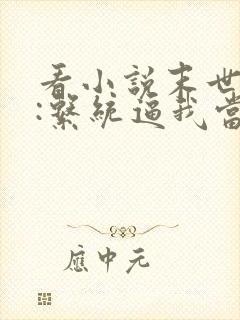 看小說末世
:繫統逼我當
應中元